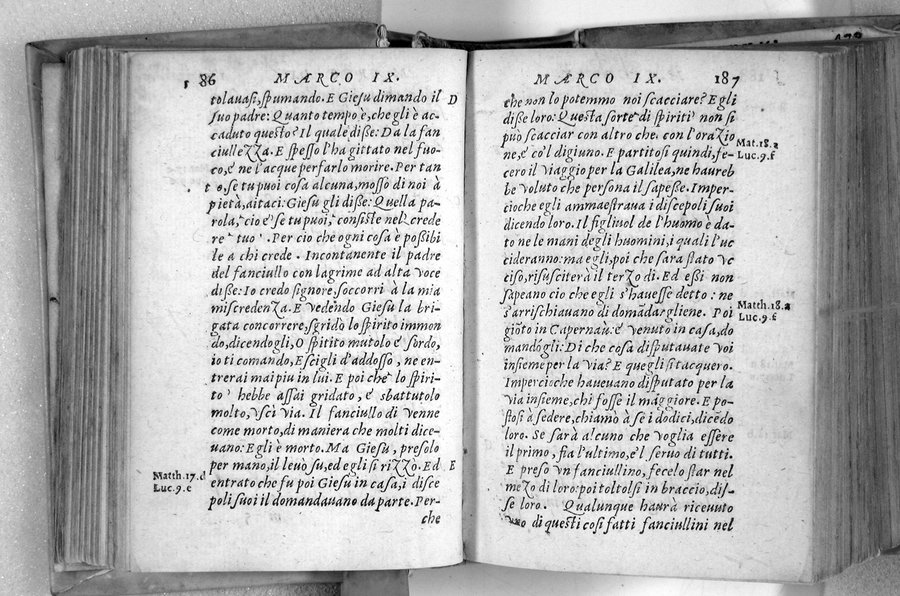 86 MARCO IX.
tolauasi, spumando. E Giesu dimando il D
suo padre: Quanto tempo è, che gli è ac-
caduto questo? Il quale disse: Da la fan
ciullezza. E spesso l'ha gittato nel fuo-
co, e' ne l'acque perfarlo morire. Per tan
to, se tu puoi cosa alcuna, mosso di noi à
pietà, aitaci: Giesu gli disse: Quella pa-
rola, cio e' se tu puoi, consiste nel crede
re tuo. Per cio che ogni cosa è possibi
le a chi crede. Incontanente il padre
del fanciullo con lagrime ad alta voce
disse: Io credo signore, soccorri à la mia
miscredenza. E vedendo Giesù la bri-
gata concorrere, sgridò lo spirito immon
do, dicendogli, O spirito mutolo e' sordo,
io ti comando, Escigli d'addosso, ne en-
trerai mai piu in lui. E poi che lo spiri-
to hebbe assai gridato, e' sbattutolo
molto, vscì via. Il fanciullo di venne
come morto, di maniera che molti dice-
uano: Egli è morto. Ma Giesu, presolo
per mano, il leuò su, ed egli si rizzò. Ed E
Matth.17.d
entrato che fu poi Giesu in casa, i disce
Luc.9.e
poli suoi il domandauano da parte. Per-
che
MARCO IX. 187
che non lo potemmo noi scacciare? Egli
disse loro: Questa sorte di spiriti non si
può scacciar con altro che, con l'orazio
Mat.18.a
ne, è co'l digiuno. E partitosi quindi, fe-
Luc.9.f
cero il viaggio per la Galilea, ne haureb
be voluto che persona il sapesse. Imper-
cioche egli ammaestraua i discepoli suoi
dicendo loro. Il figliuol de l'huomo è da-
to ne le mani degli huomini, i quali l'uc
cideranno: ma egli, poi che sara stato vc
ciso, risusciterà il terzo di. Ed essi non
sapeano cio che egli s'hauesse detto: ne
Matth.18.a
s'arrischiauano di domãdargliene. Poi
Luc.9.f
giõto in Capernaù: e' venuto in casa, do
mandógli: Di che cosa disputauate voi
insieme per la via? E quegli si tacquero.
Impercioche haueuano disputato per la
via insieme, chi fosse il maggiore. E po-
stosi à sedere, chiamò à se i dodici, dicẽdo
loro. Se sarà alcuno che voglia essere
il primo, sia l'ultimo, e'l seruo di tutti.
E preso vn fanciullino, fecelo star nel
mezo di loro: poi toltolsi in braccio, dis-
se loro. Qualunque haurà riceuuto
vno di questi cosi fatti fanciullini nel